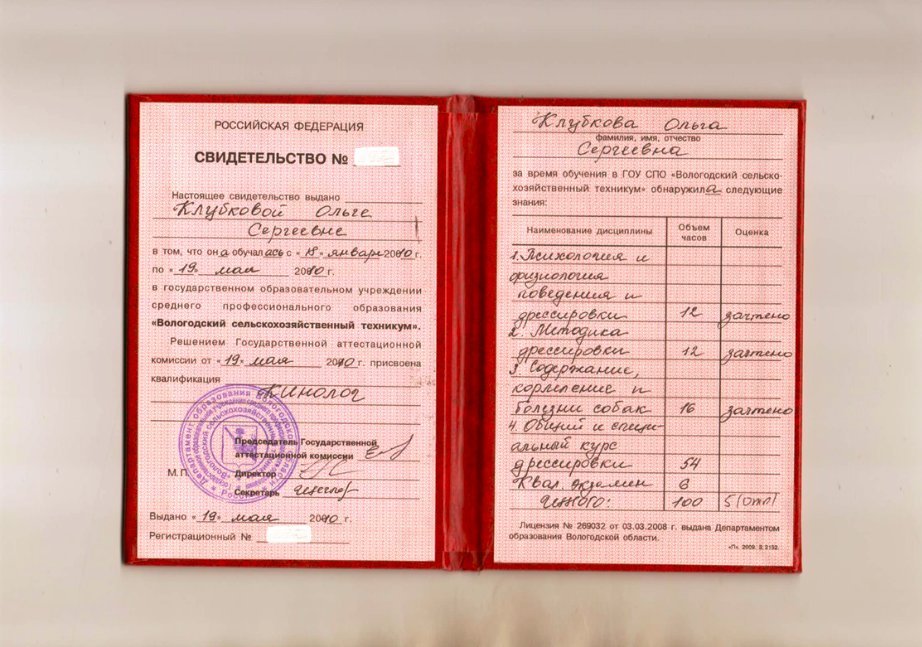 РОССИЙСКАЯ ФЕДЕРАЦИЯ
СВИДЕТЕЛЬСТВО №
Настоящее свидетельство выдано
Клубковой Ольге
Сергеевне
в том, что она обучалась с «18» января 2010 г.
по «19» мая 2010 г.
в государственном образовательном учреждении
среднего профессионального образования
«Вологодский сельскохозяйственный техникум».
Решением Государственной аттестационной
комиссии от «19» мая 2010 г. присвоена
квалификация
Кинолог
Председатель Государственной
аттестационной комиссии
М.П.
Директор
Секретарь
Выдано «19» мая 2010 г.
Регистрационный №
Клубкова Ольга
фамилия, имя, отчество
Сергеевна
за время обучения в ГОУ СПО «Вологодский сельско-
хозяйственный техникум» обнаружила следующие
знания:
Наименование дисциплины Объем часов Оценка
1. Психология и
физиология
поведения и
дрессировки 12 зачтено
2. Методика
дрессировки 12 зачтено
3. Содержание,
кормление и
болезни собак 16 зачтено
4. Общий и специ-
альный курс
дрессировки 54
Квал. экзамен 6
Итого: 100 5 (отл)
Лицензия № 269032 от 03.03.2008 г. выдана Департаментом
образования Вологодской области.